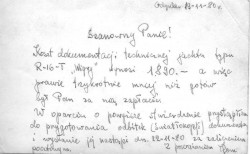 12-11-80 r.
Szanowny Panie!
Koszt dokumentacji technicznej jachtu typu
R-16-T "Węgy" wynosi 1890.- a więc
prawie trzykrotnie mniej niż gotów
był Pan za nią zapłacić.
W oparciu o powyższe stwierdzenie przystąpiłem
do przygotowania odbitek światłokopii dokumentacji
i wysłanie jej nastąpi dn. 12-11-80 za zaliczeniem
pocztowym. Z poważaniem